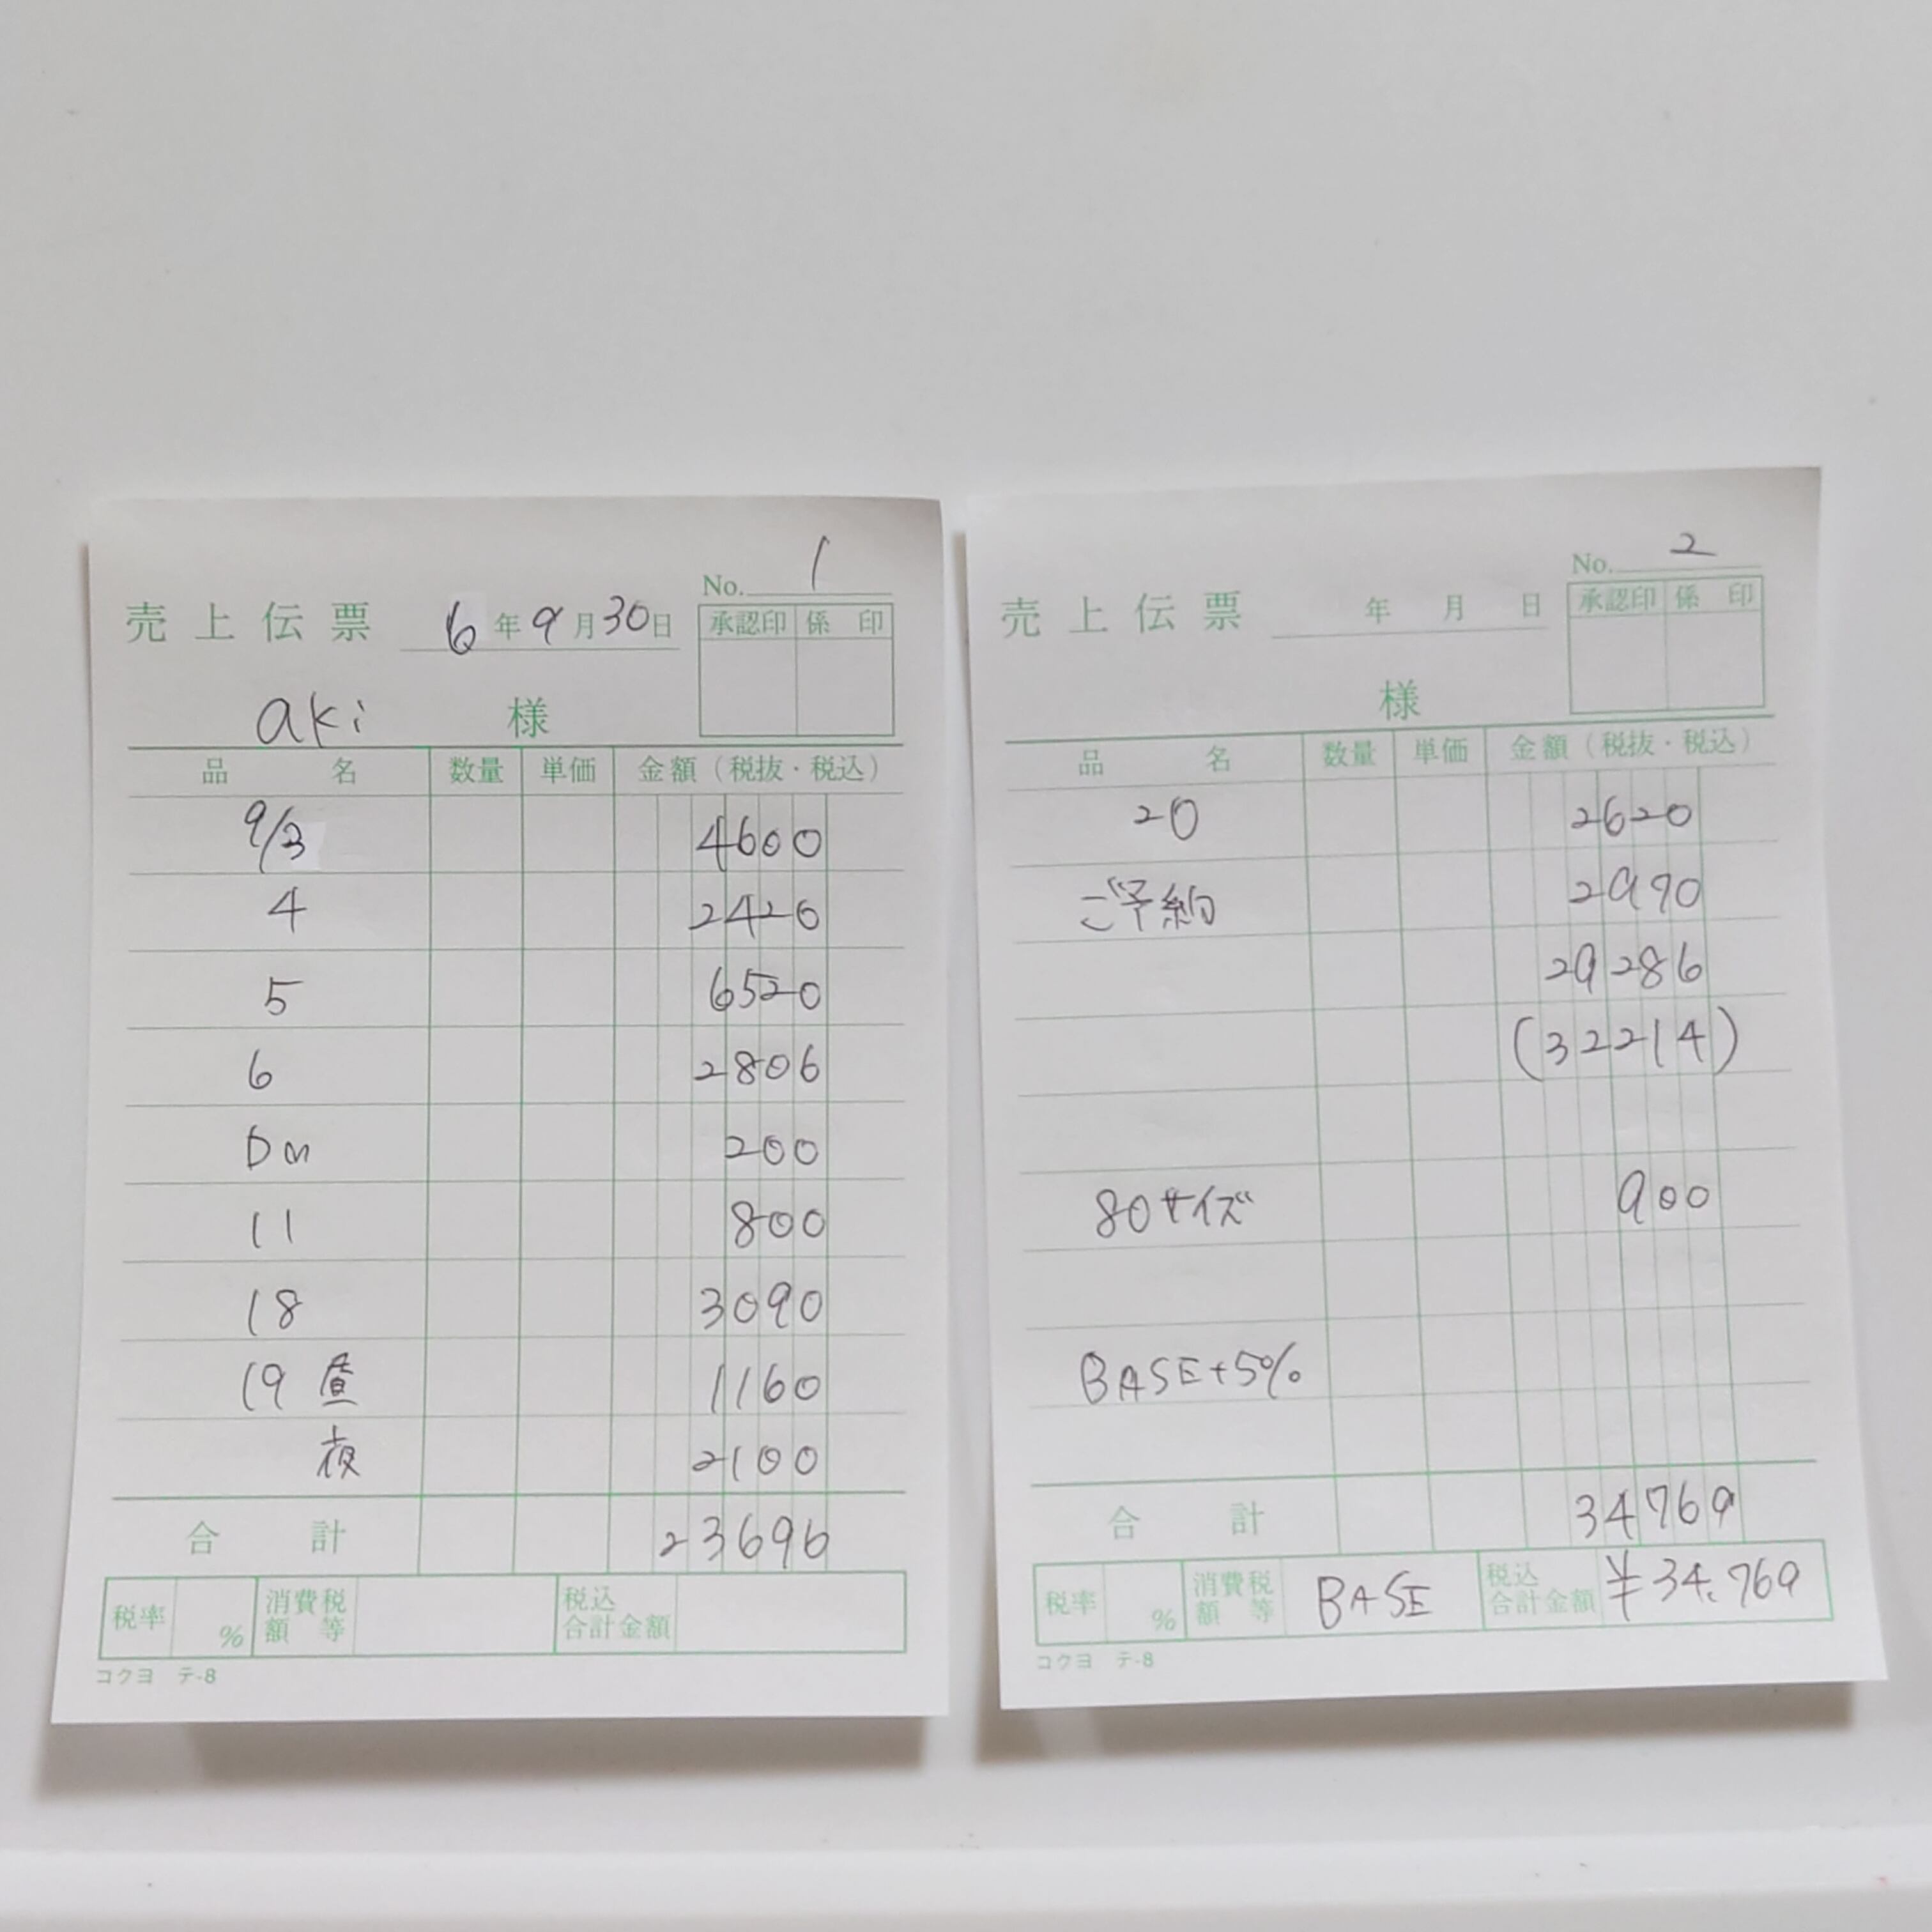 No. 1
売上伝票 6年9月30日
承認印 係印
aki 様
品名 数量 単価 金額（税抜・税込）
9/3 4600
4 2420
5 6520
6 2806
Dm 200
11 800
18 3090
19 昼 1160
夜 2100
合計 23696
税率 % 消費税額等 税込合計金額
コクヨ テ-8
No. 2
売上伝票 年 月 日
承認印 係印
様
品名 数量 単価 金額（税抜・税込）
20 2620
ご予約 2970
29286
(32214)
80サイズ 900
BASE+5%
合計 34769
税率 % 消費税額等 BASE 税込合計金額 ¥34.769
コクヨ テ-8